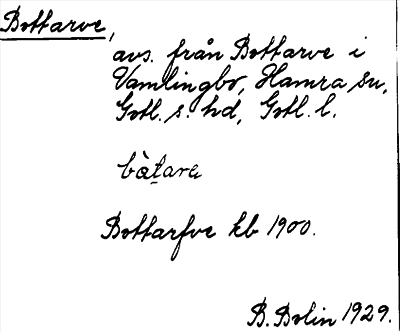 Bottarve,
avs. från Bottarve i
Vamlingbo, Hamra sn,
Gotl. s. hd, Gotl. l.
bàt̠ara
Bottarfve kb 1900.
B. Bolin 1929.